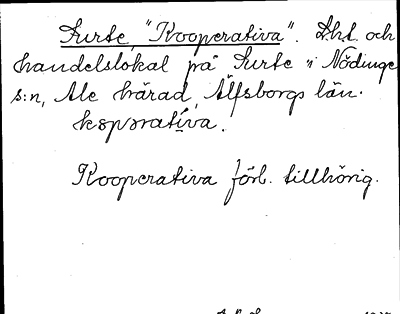 Surte, "Kooperativa". Lht. och
handelslokal på Surte i Nödinge
s:n, Ale härad, Älfsborgs län.
koparatíva.
Kooperativa förb. tillhörig.